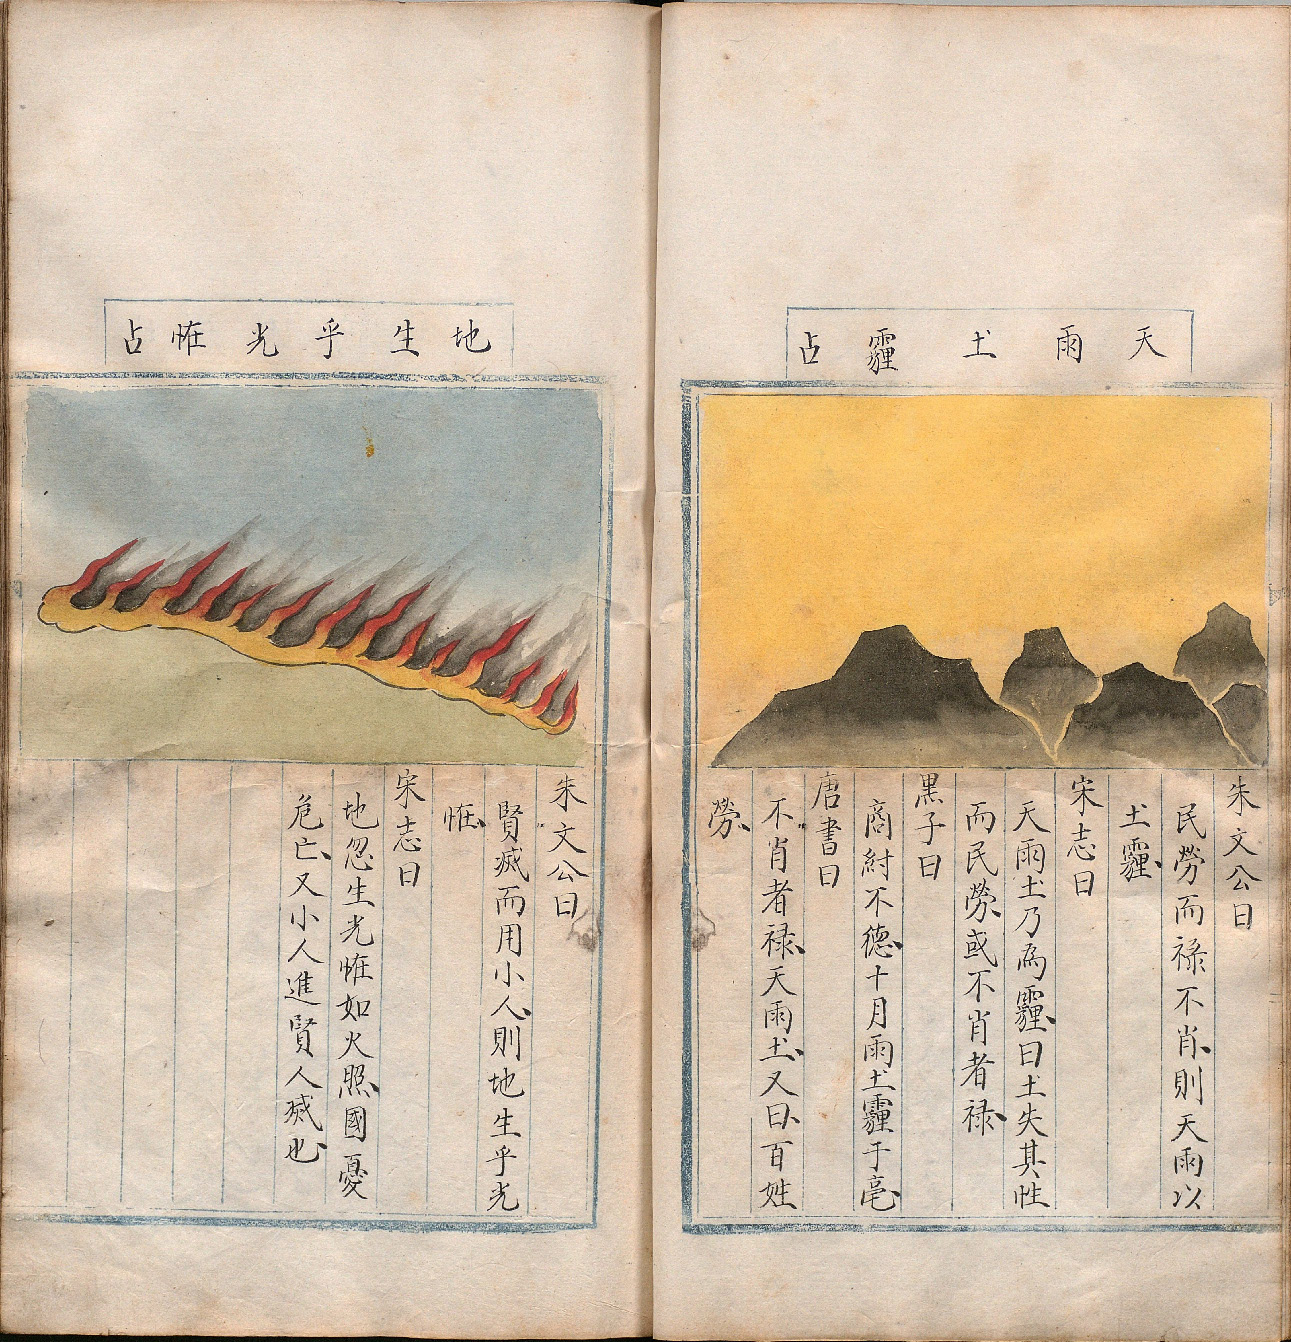 天雨圡霾占
朱文公曰
民勞而禄不肖、則天雨以
圡霾、
宋志曰
天雨圡乃為霾、曰圡失其性
而民勞、或不肖者禄、
黒子曰
商紂不德、十月雨圡霾于亳、
唐書曰
不肖者禄、天雨圡、又曰、百姓
勞、
地生乎光恠占
朱文公曰
賢滅而用小人、則地生乎光
恠、
宋志曰
地忽生光恠如火照、國憂
危亡、又小人進賢人滅也、